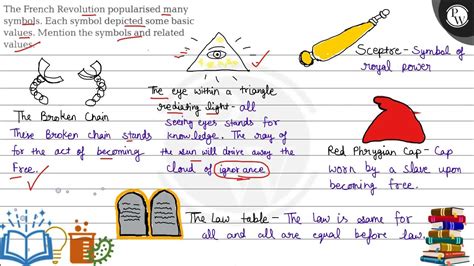 The French Revolution popularised many
symbols. Each symbol depicted some basic
values. Mention the symbols and related
values.
PW
Sceptre - Symbol of
royal power
The eye within a triangle
rediating light - all
seeing eyes stands for
knowledge. The ray of
the sun will drive away the
cloud of ignorance
The Broken Chain
These Broken chain stands
for the act of becoming
Free.
Red Phrygian Cap - Cap
worn by a slave upon
becoming free.
The Law table - The law is same for
all and all are equal before law.